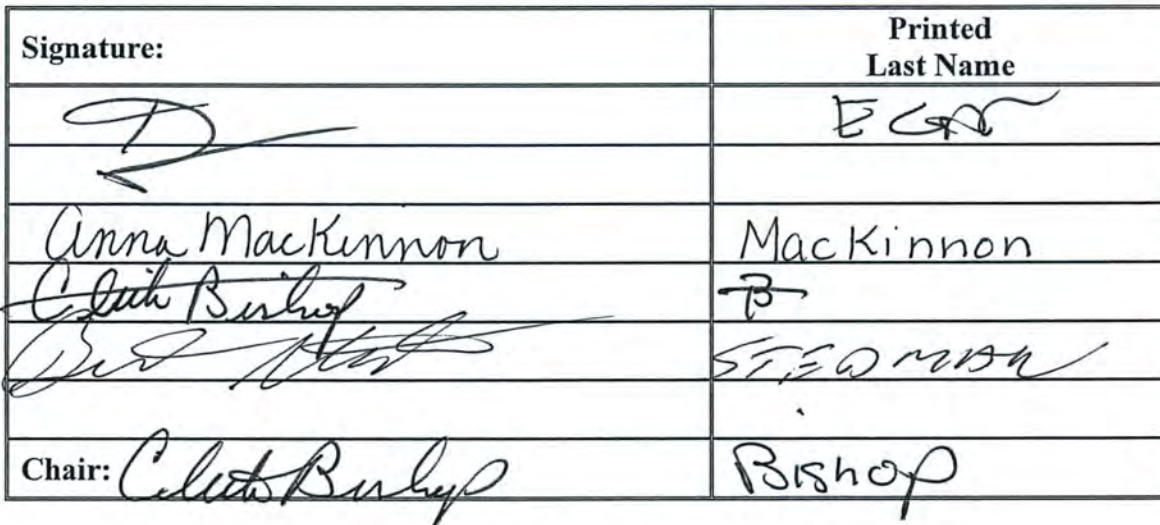 Signature: Printed
Last Name
EGAN
Anna MacKinnon MacKinnon
Bishop B
STEDMAN
Chair: Click Bishop Bishop